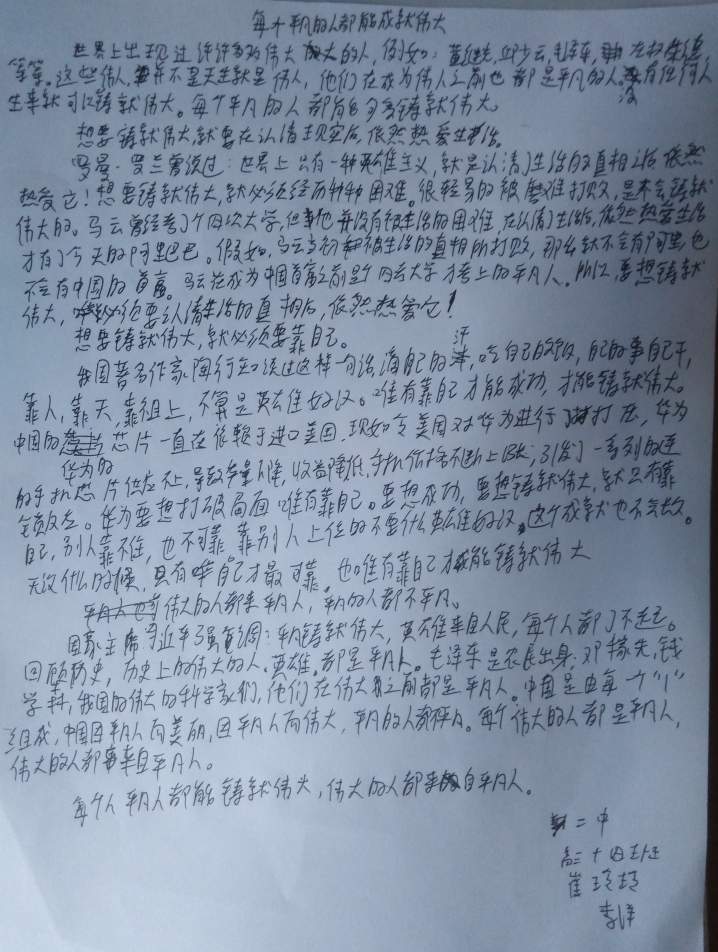 每个平凡的人都能成就伟大
世界上出现过许许多多伟大的人,例如:黄继光,邱少云,毛泽东,
等等。这些伟人,并不是天生就是伟人,他们在成为伟人之前也都是平凡的人。没有任何人
生来就可以铸就伟大。每个平凡的人都有铸就伟大
想要铸就伟大,就要在认清现实后,依然热爱生活。
罗曼·罗兰曾说过:世界上只有一种英雄主义,就是认清了生活的真相之后依然
热爱它!想要铸就伟大,就必须经历种种困难。很轻易的被磨难打败,是不会铸就
伟大的。马云曾经考了个四次大学,但他并没有被生活的困难,在认清了生活后,依然热爱生活
才有了今天的阿里巴巴。假如,马云当初被生活的真相所打败,那么就不会有阿里,也
不会有中国的首富。马云在成为中国首富之前是个四次大学才考上的平凡人。所以,要想铸就
伟大,必须要认清生活的真相后,依然热爱它!
想要铸就伟大,就必须要靠自己。
我国著名作家陶行知说过这样一句话,滴自己的汗,吃自己的饭,自己的事自己干,
靠人,靠天,靠祖上,不算是英雄好汉。唯有靠自己才能成功,才能铸就伟大。
中国的芯片一直在依赖于进口美国,现如今美国对华为进行打压,华为
华为的
的手机芯片供应不上,导致产量下降,收益降低,手机价格不断上涨,引发了一系列的连
锁反应。华为要想打破局面唯有靠自己。要想成功,要想铸就伟大,就只有靠
自己,别人靠不住,也不可靠,靠别人上位的不是什么英雄好汉,这个成就也不会长久。
无论什么时候,只有自己才最可靠,也唯有靠自己才能铸就伟大
伟大的人都来平凡人,平凡的人都不平凡。
国家主席习近平强调:平凡铸就伟大,英雄来自人民,每个人都了不起。
回顾历史,历史上的伟大的人,英雄,都是平凡人。毛泽东是农民出身,邓稼先,钱
学森,我国的伟大的科学家们,他们在伟大之前都是平凡人。中国是由每一个“1”
组成,中国因平凡人而美丽,因平凡人而伟大,平凡的人都不平凡。每个伟大的人都是平凡人,
伟大的人都来自平凡人。
每个人平凡人都能铸就伟大,伟大的人都来自平凡人。
二中
高三十四班
崔玲玲
李洋